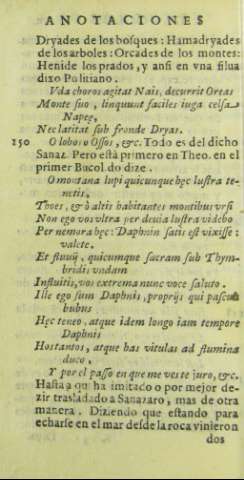 ANOTACIONES
Dryades de los bosques: Hamadryades
de los arboles: Orcades de los montes:
Henide los prados, y ansi en vna silua
dizo Policiano.
Vda choros agitat Nais, decurrit Oreas
Monte suo, linquunt faciles iuga celsa
Napeę,
Nec latitat sub fronde Dryas.
250 O lobos o Ossos, &c. Todo es del dicho
Sanaz. Pero està primero en Theo. en el
primer Bucol. do dize.
O montana lupi quicunque hęc lustra te-
netis,
Thoes, & ò altis habitantes montibus vrsi
Non ego vos vltra per deuia lustra videbo
Per nemora hęc: Daphnin satis est vixisse:
valete.
Et fluuij, quicumque sacram sub Thym-
bridis vndam
Influitis, vos extrema nunc voce saluto.
Ille ego sum Daphnis, proprijs qui pascua
bubus
Hęc teneo, atque idem longo iam tempore
Daphnis
Hostantos, atque has vitulas ad flumina
duco.
Y por el passo en que me veste juro, &c.
Hasta a qui ha imitado o por mejor de-
zir trasladado a Sanazaro, mas de otra
manera. Diziendo que estando para
echarse en el mar desde la roca vinieron
dos